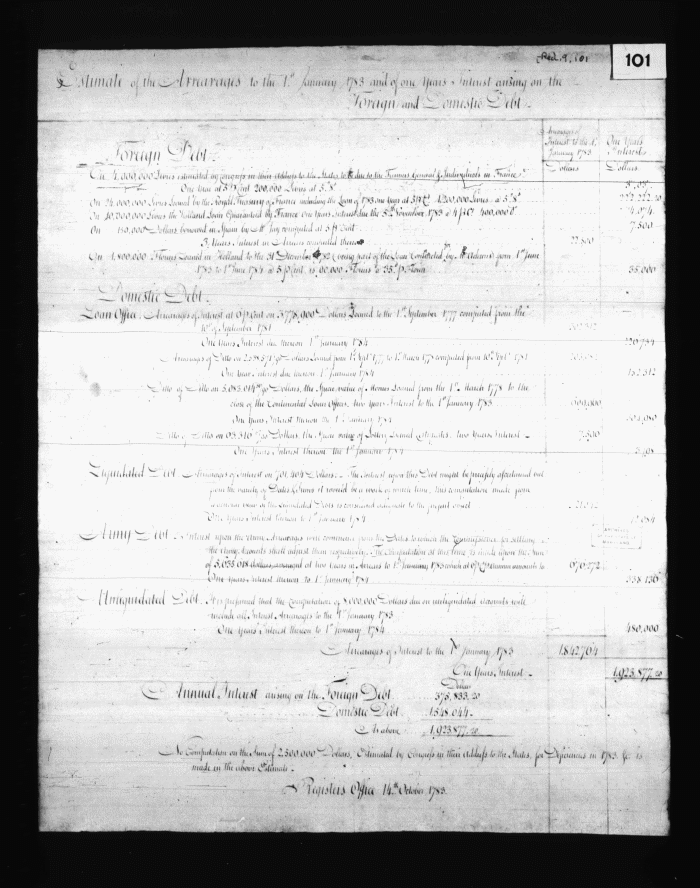 101
Estimate of the Arrearages to the 1st January 1783 and of one Years Interest arising on the
Foreign and Domestic Debt
Arrearages of Interest to the 1st January 1783
One Years Interest
Foreign Debt
Dollars
Dollars
On 4,000,000 Livres estimated by Congress in their address to the States to be due to the Farmers General & Individuals in France
One Year at 5 pCent 200,000 Livres at 5.8
37,037
On 24,000,000 Livres Loaned by the Royal Treasury of France including the Loan of 1783 one Years at 5 pCt 1,200,000 Livres at 5.8
222,222.20
On 10,000,000 Livres the Holland Loan Guaranteed by France one Years Interest due the 5th November 1783 @ 4 pCt 400,000
74,074
On 150,000 Dollars borrowed in Spain by Mr Jay computed at 5 pCent
7,500
3 Years Interest in Arrears computed thereon
22,500
On 1,800,000 Florins Loaned in Holland to the 31 December 1782 (being part of the Loan Contracted by Mr Adams) from 1st June
1783 to 1st June 1784 @ 5 pCent is 90,000 Florins
35,000
Domestic Debt
Loan Office. Arrearages of Interest at 6 pCent on 3,778,900 Dollars Loaned to the 1st September 1777 computed from the
10th of September 1781
One Years Interest due thereon 1st January 1784
226,734
Arrearages of Ditto on Dollars Loaned from 1st Sept 1777 to 1st March 1778 computed from 10th Sept 1781
One Years Interest due thereon 1st January 1784
152,312
Ditto of Ditto on Dollars, the Specie value of Monies Loaned from the 1st March 1778 to the
close of the Continental Loan Offices, two Years Interest to the 1st January 1783
One Years Interest thereon the 1st January 1784
Ditto of Ditto on Dollars, the Specie value of Lottery Loaned Certificates, two Years Interest
7,500
One Years Interest thereon the 1st January 1784
Liquidated Debt. Arrearages of Interest on 701,404 Dollars. The Interest upon this Debt might be precisely ascertained but
from the variety of Dates & Sums it would be a work of much time, this computation made from
One Years Interest thereon to 1st January 1784
42,084
Army Debt. Interest upon the Army Arrearages will commence from the Dates to which the Commissioner for settling
the Army Accounts shall adjust them respectively. The Computation at this time is made upon the Sum
of 5,635,618 dollars averaged at two Years in Arrears to 1st January 1783 which at 6 pCt annum amounts to
676,272
One Years Interest thereon to 1st January 1784
338,136
Unliquidated Debt. It is presumed that the Computation of 8,000,000 Dollars due on unliquidated accounts will
include all Interest Arrearages to the 1st January 1783
One Years Interest thereon to 1st January 1784
480,000
Arrearages of Interest to the 1st January 1783
1,842,704
One Years Interest
1,923,877.20
Dollars
Annual Interest arising on the Foreign Debt 375,833.20
Domestic Debt 1,548,044
As above 1,923,877.20
No Computation on the Sum of 2,500,000 Dollars, Estimated by Congress in their Address to the States, for Deficiencies in 1783, &c. is
made in the above Estimate.
Registers Office 14th October 1783.